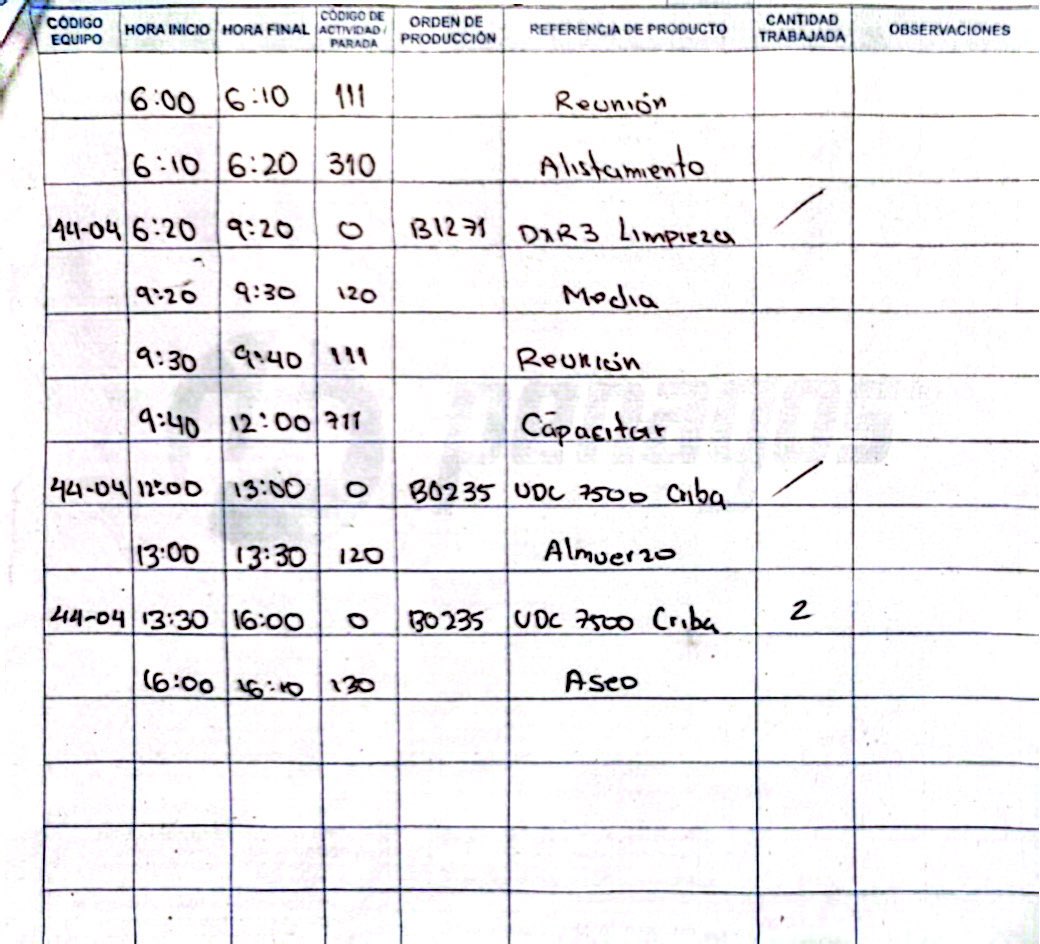 CÓDIGO EQUIPO HORA INICIO HORA FINAL CÓDIGO DE ACTIVIDAD / PARADA ORDEN DE PRODUCCIÓN REFERENCIA DE PRODUCTO CANTIDAD TRABAJADA OBSERVACIONES
6:00 6:10 111 Reunión
6:10 6:20 310 Alistamiento
44-04 6:20 9:20 0 B1271 DxR3 Limpieza /
9:20 9:30 120 Media
9:30 9:40 111 Reunión
9:40 12:00 711 Capacitar
44-04 12:00 13:00 0 B0235 UDC 7500 Criba /
13:00 13:30 120 Almuerzo
44-04 13:30 16:00 0 B0235 UDC 7500 Criba 2
16:00 16:10 130 Aseo